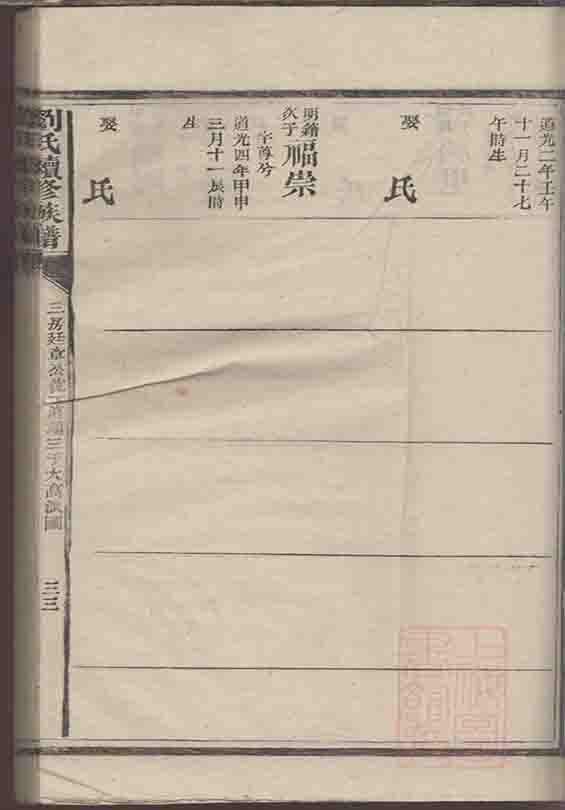 道光二年壬午
十一月二十七
午時生
娶
氏
明鏞
次子
福崇
字尊兮
道光四年甲申
三月十一辰時
生
娶
氏
劉氏續修族譜
三房廷章公
三子大
圖
三三
上